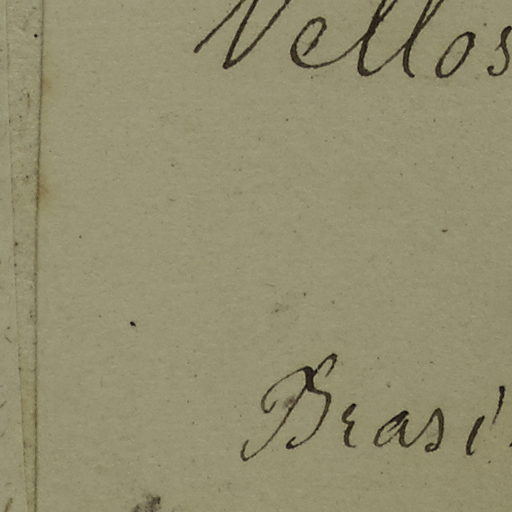 Vellos
Brasi